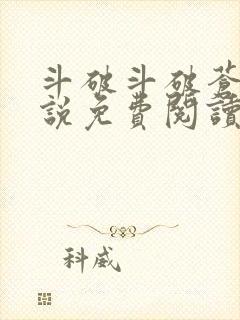 斗破斗破蒼
說免費閱讀
科威